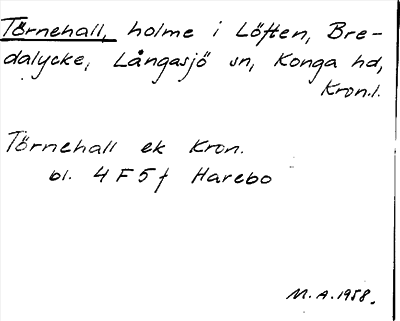 Törnehall, holme i Löften, Bre-
dalycke, Långasjö sn, Konga hd,
Kron.l.
Törnehall ek Kron.
bl. 4 F 5 f Harebo
M.A. 1958.